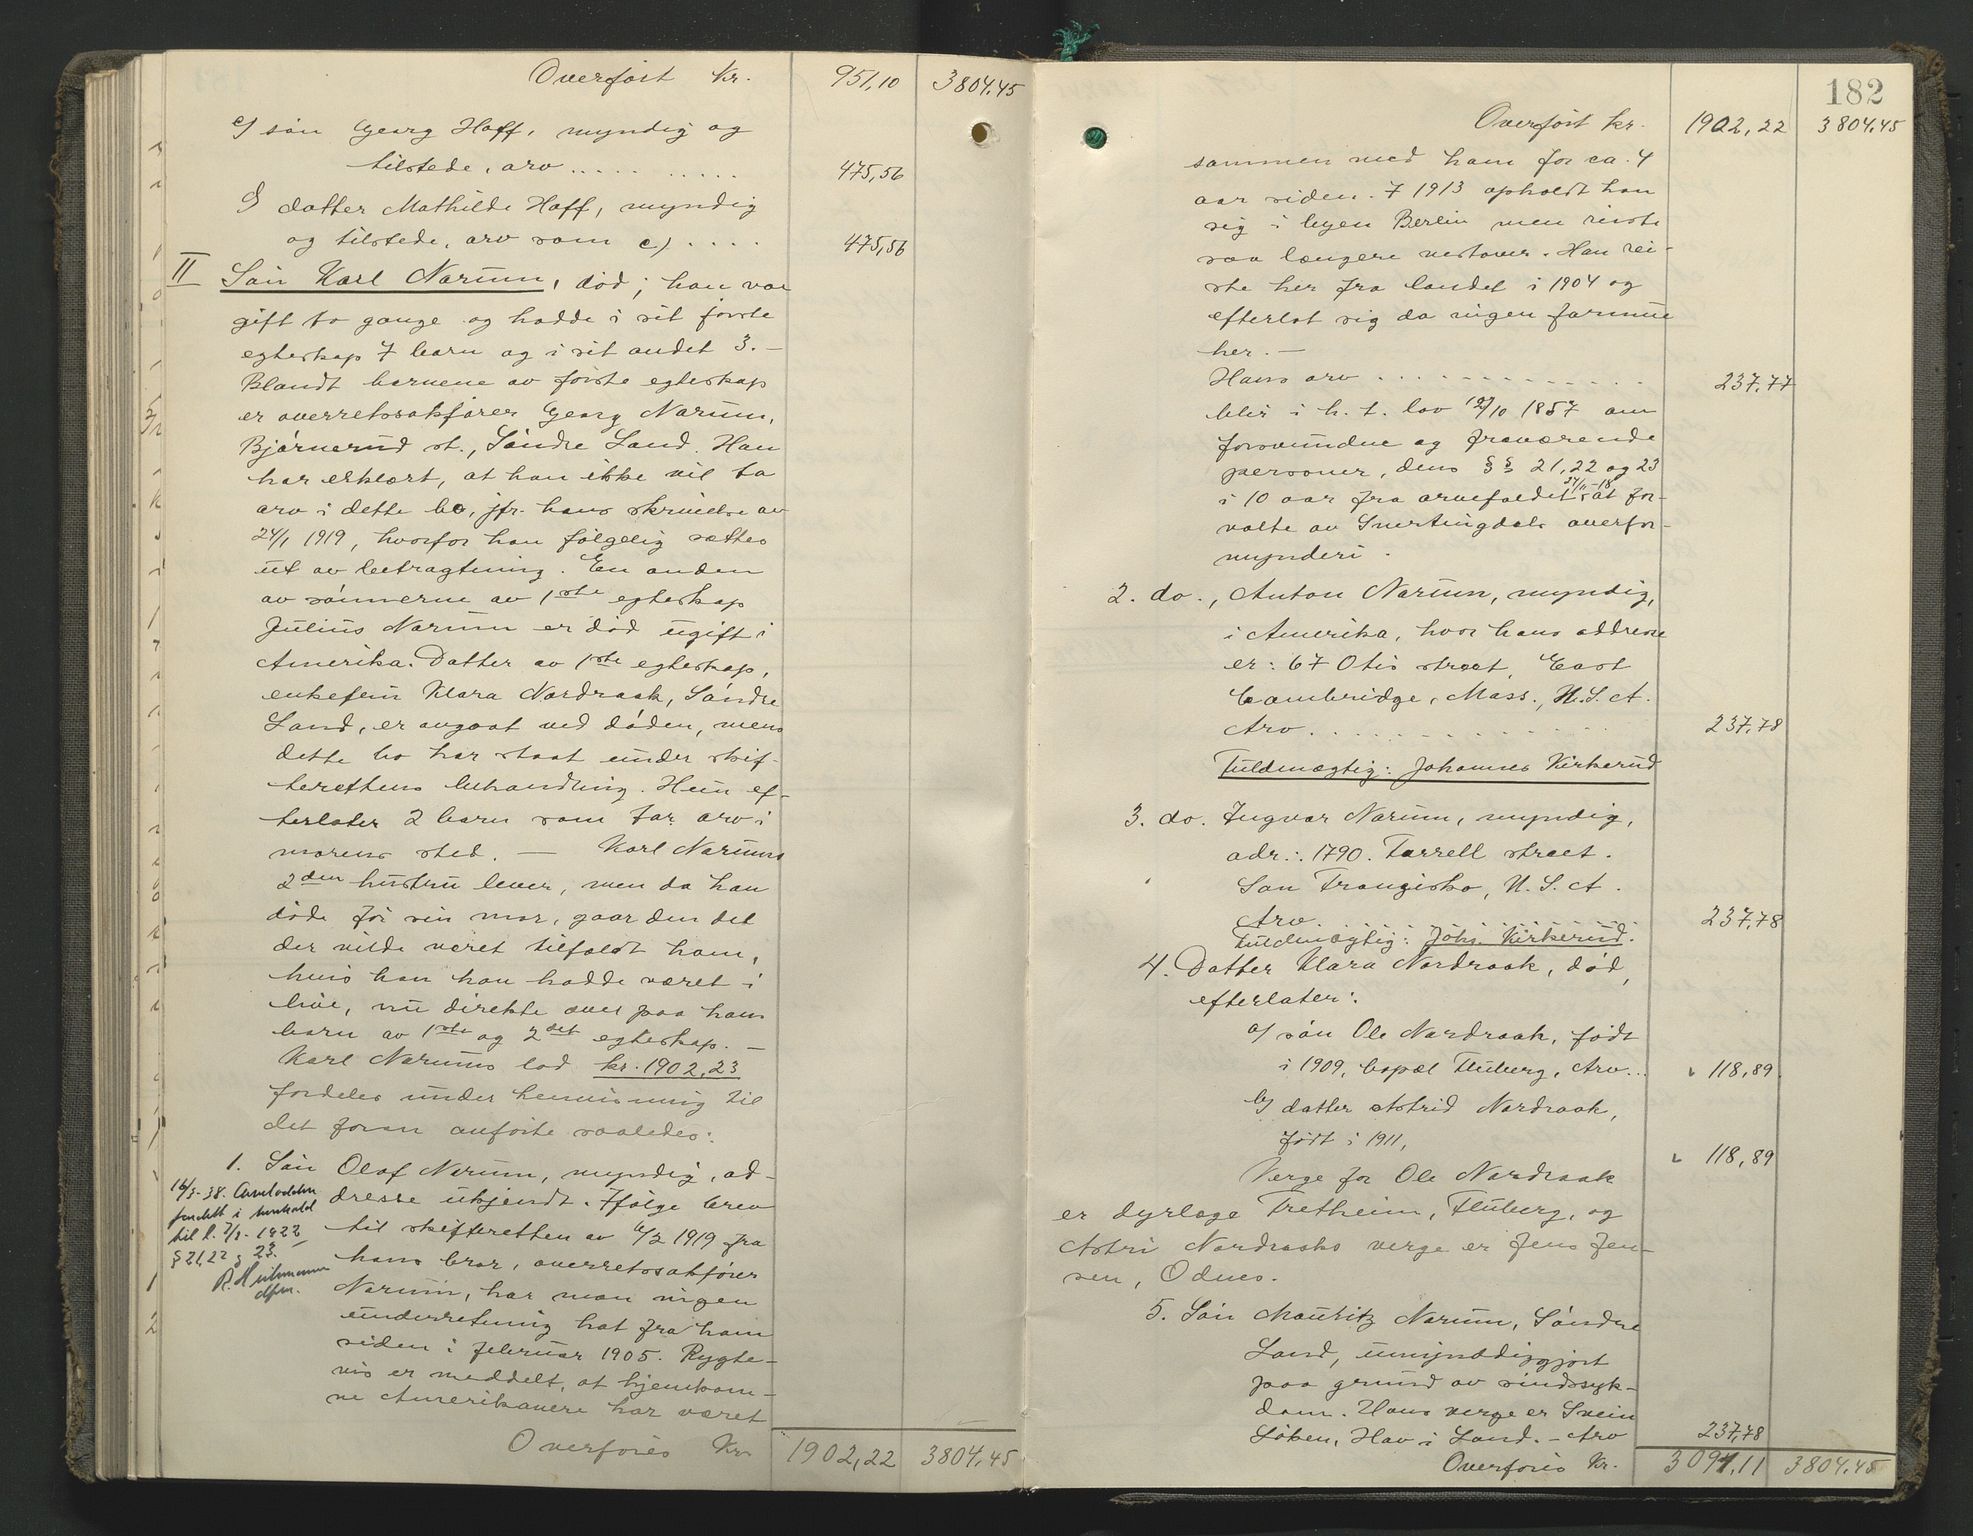 Overført Kr. 951,10 3804,45
c) søn Georg Hoff, myndig og
tilstede, arv .......... 475,56
d) datter Mathilde Hoff, myndig
og tilstede, arv som c) .... 475,56
II Søn Karl Narum, død; han var
gift to gange og hadde i sit første
egteskap 7 barn og i sit andet 3. –
Blandt barnene av første egteskap
er overretssakfører Georg Narum,
Bjørnerud st., Søndre Land. Han
har erklært, at han ikke vil ta
arv i dette bo, jfr. hans skrivelse av
24/1 1919, hvorfor han følgelig sættes
ut av betragtning. En anden
av sønnerne av 1ste egteskap
Julius Narum er død ugift i
Amerika. Datter av 1ste egteskap,
enkefru Klara Nordraak, Søndre
Land, er avgaat ved døden, mens
dette bo har staat under skif-
terettens behandling. Hun ef-
terlater 2 barn som tar arv i
morens sted. — Karl Narums
2den hustru lever, men da han
døde før sin mor, gaar den del
der vilde været tilfaldt ham,
hvis han hadde været i
live, nu direkte over paa hans
barn av 1ste og 2det egteskap. –
Karl Narums lod kr. 1902,23
fordeles under henvisning til
det foran anførte saaledes:
1. Søn Olaf Narum, myndig, ad-
dresse ukjendt. Ifølge brev
til skifteretten av 6/2 1919 fra
hans bror, overretssakfører
Narum, har man ingen
underretning hat fra ham
siden i februar 1905. Rygte-
vis er meddelt, at hjemkom-
ne Amerikanere har været
16/3-38. Arvelodden
fordelt i henhold
til l. 7/7-1922
§ 21, 22 & 23.
dfm.
Overføres Kr. 1902,22 3804,45
182
Overført kr. 1902,22 3804,45
sammen med ham for ca. 4
aar siden. I 1913 opholdt han
sig i byen Berlin men reiste
saa længere vestover. Han rei-
ste her fra landet i 1904 og
efterlot sig da ingen formue
her. —
Hans arv .............. 237,77
blir i h. t. lov 12/10 1857 om
forsvundne og fraværende
personer, dens §§ 21, 22 og 23
i 10 aar fra arvefaldet 24/11-18 at for-
valte av Snertingdals overfor-
mynderi.
2. do., Anton Narum, myndig,
i Amerika, hvor hans addresse
er: 67 Otis street, East
Cambridge, Mass., U. S. A.
Arv .............. 237,78
Fuldmægtig: Johannes Kirkerud
3. do. Ingvar Narum, myndig,
adr.: 1790. Farrell street.
San Frangisko, U. S. A.
Arv .............. 237,78
Fuldmægtig: Johs. Kirkerud.
4. Datter Klara Nordraak, død,
efterlater:
a) søn Ole Nordraak, født
i 1909, bopæl Fluberg, Arv... 118,89
b) datter Astrid Nordraak,
født i 1911, 118,89
Verge for Ole Nordraak
er dyrlæge Fretheim, Fluberg, og
Astri Nordraaks verge er Jens Jen-
sen, Odnes.
5. Søn Mauritz Narum, Søndre
Land, umyndiggjort
paa grund av sindssyk-
dom. Hans verge er Svein
Løken, Hov i Land. – Arv 237,78
Overføres Kr. 3091,11 3804,45